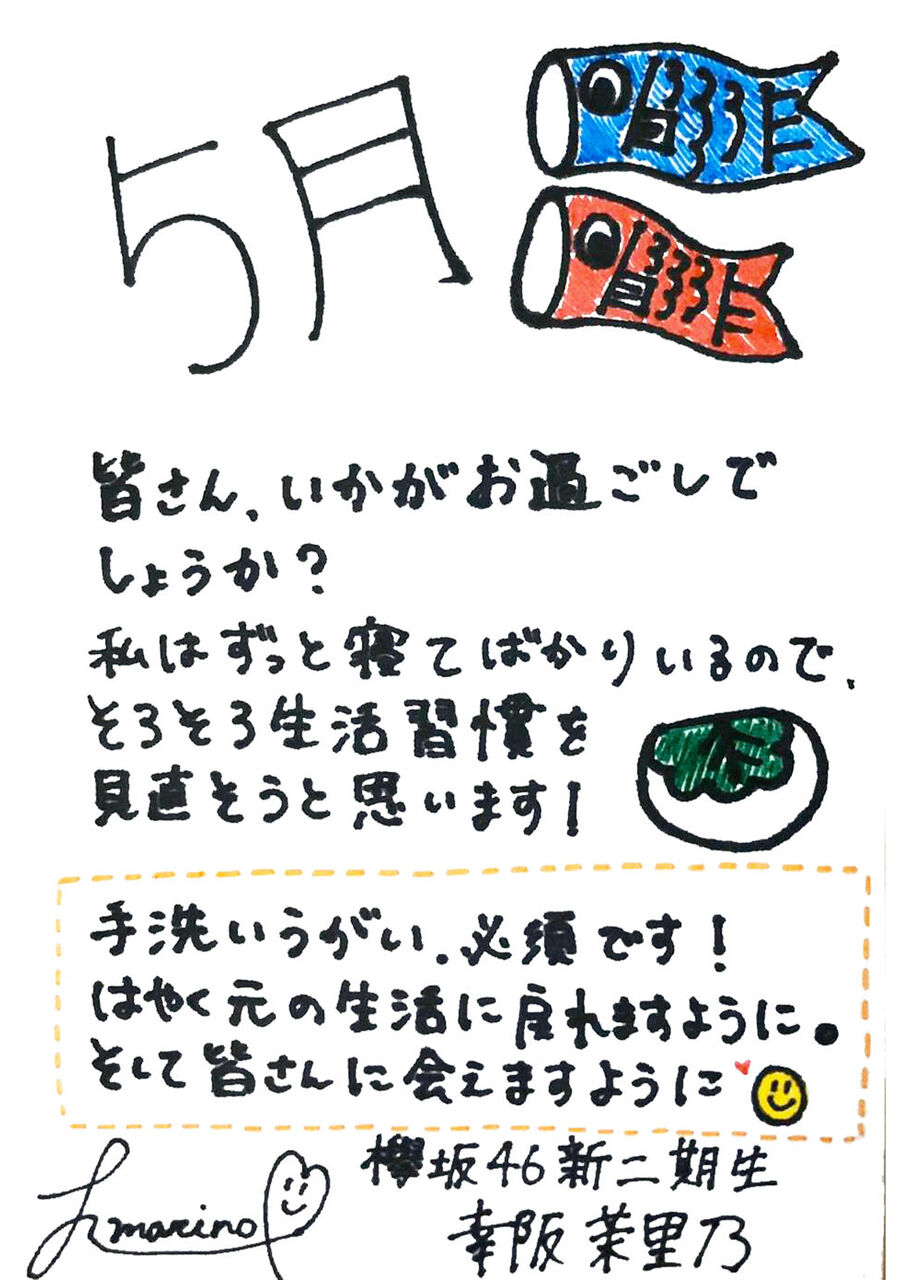 5月
皆さん、いかがお過ごしで
しょうか?
私はずっと寝てばかりいるので、
そろそろ生活習慣を
見直そうと思います!
手洗いうがい、必須です!
はやく元の生活に戻れますように。
そして皆さんに会えますように
欅坂46新二期生
marino
幸阪茉里乃